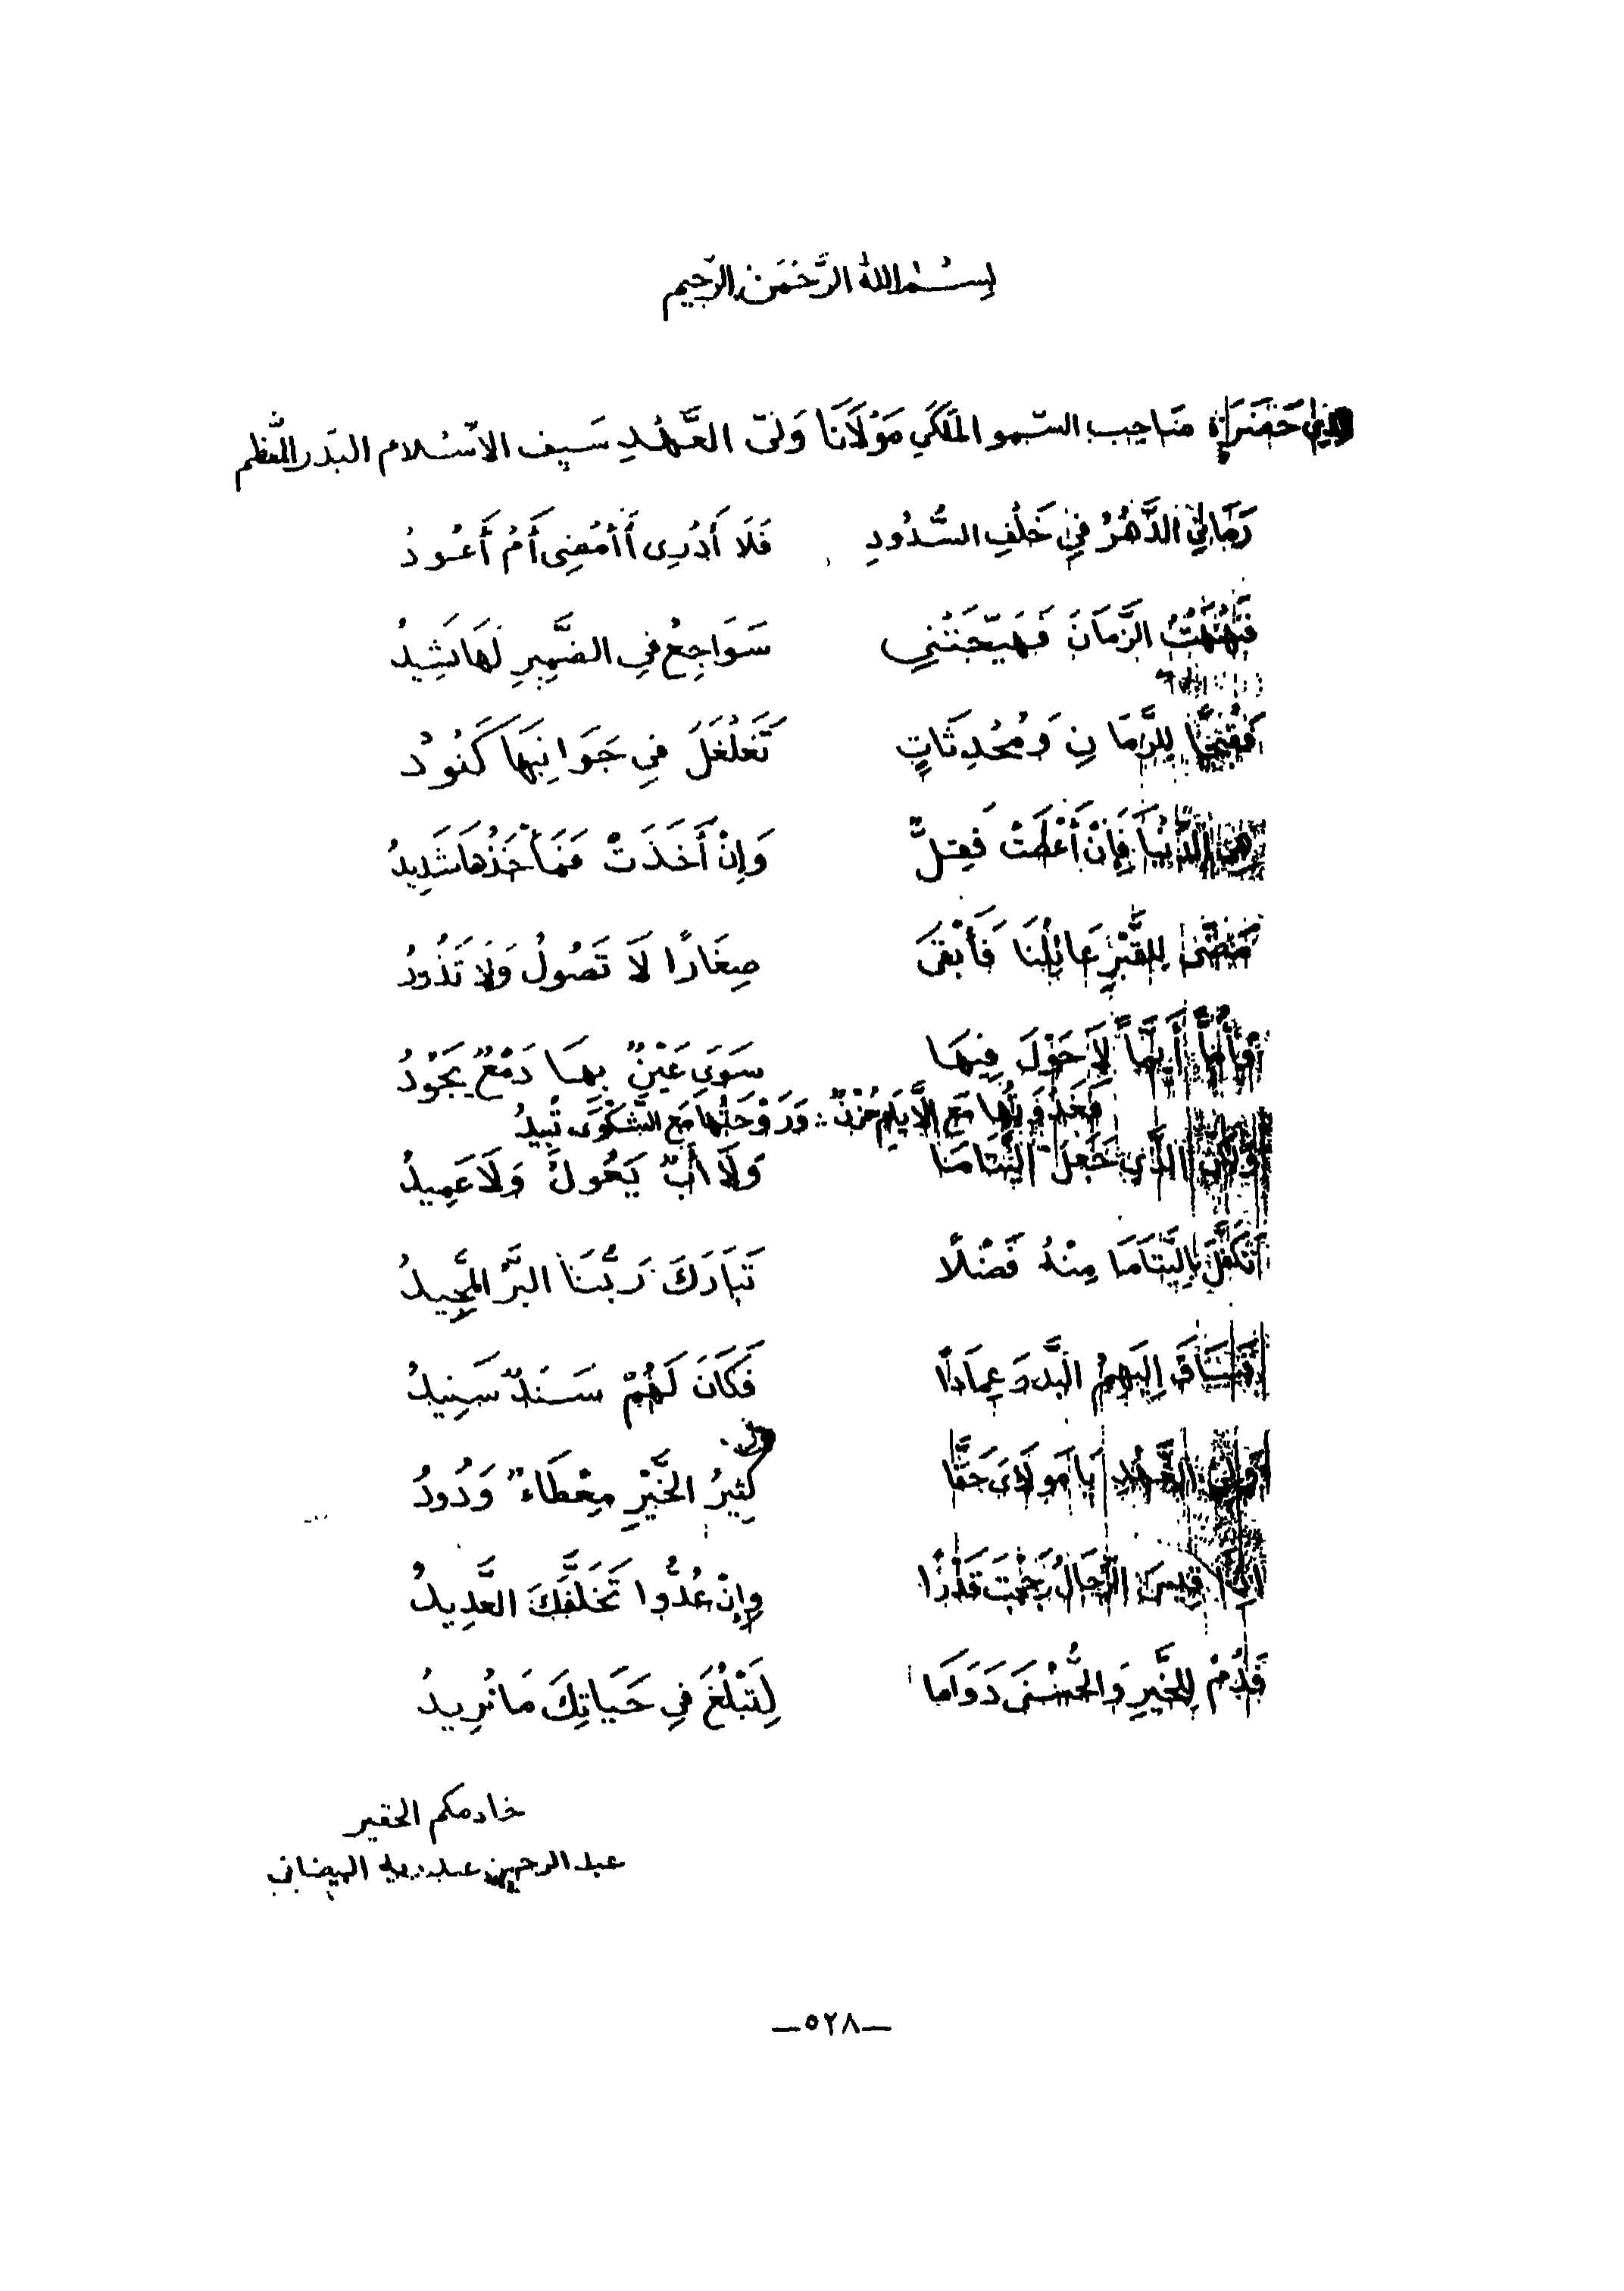 بِسْمِ اللهِ الرَّحْمَنِ الرَّحِيمِ
حَضَرَة صَاحِب السّمو المَلَكي مَوْلَانَا وَلىّ العَهْدِ سَيف الاسْلام البَدر المعَظم
رَمَانِي الدَّهْرُ فِي خَلْفِ السُّدُودِ فَلَا أَدْرِى أَأَمْضِى أَمْ أَعُودُ
الزَّمَانَ فَهَيّجَتْنِي سَوَاجِعُ فِي الضَّمِيرِ لَهَا نَشِيدُ
فَقُبْحًا لِلزَّمَانِ وَمُحْدِثَاتٍ تَغَلْغَلَ فِي جَوَانِبِهَا كَنُودُ
هِىَ الدُّنْيَا فَإِنْ أَعْطَتْ فَقِلٌّ وَإِنْ أَخَذَتْ فَمَأْخَذُهَا شَدِيدُ
مَضَى لِلقَبْرِ عَائِلُنَا فَأَبْقَى صِغَارًا لَا تَصُولُ وَلَا تَذُودُ
وَأُمًّا أَيِّمًا لَا حَوْلَ فِيهَا سِوَى عَيْنٍ بِهَا دَمْعٌ يَجُودُ
مَعَ الأَيَّامِ حُزْنٌ : وَرَوْحَتُهَا مَعَ الشَّكْوَى تَبِيدُ
الَّذِي جَعَلَ اليَتَامَا وَلَا أَبٌ يَعُولُ وَلَا عَمِيدُ
تَكَفَّلَ بِاليَتَامَا مِنْهُ فَضْلًا تَبَارَكَ رَبُّنَا البَرُّ المَجِيدُ
فَسَاقَ إِلَيهِمُ البَدرَ عِمَادًا فَكَانَ لَهُمْ سَنَدٌ سَنِيدُ
وَلِىَّ العَهْدِ يَا مَولَاىَ حَقًّا كَثِيرُ الخَيْرِ مِعْطَاءٌ وَدُودُ
إِذَا قِيسَ الرِّجَالُ رَجَحْتَ قَدْرًا وَإِنْ عُدُّوا تَخَلَّفَكَ العَدِيدُ
فَدُمْ لِلخَيْرِ وَالحُسْنَى دَوَامَا لِتَبْلُغَ فِي حَيَاتِكَ مَا تُرِيدُ
خادمكم الحقير
عبد الرحمن عبد ربه البيضاني
—٥٢٨—